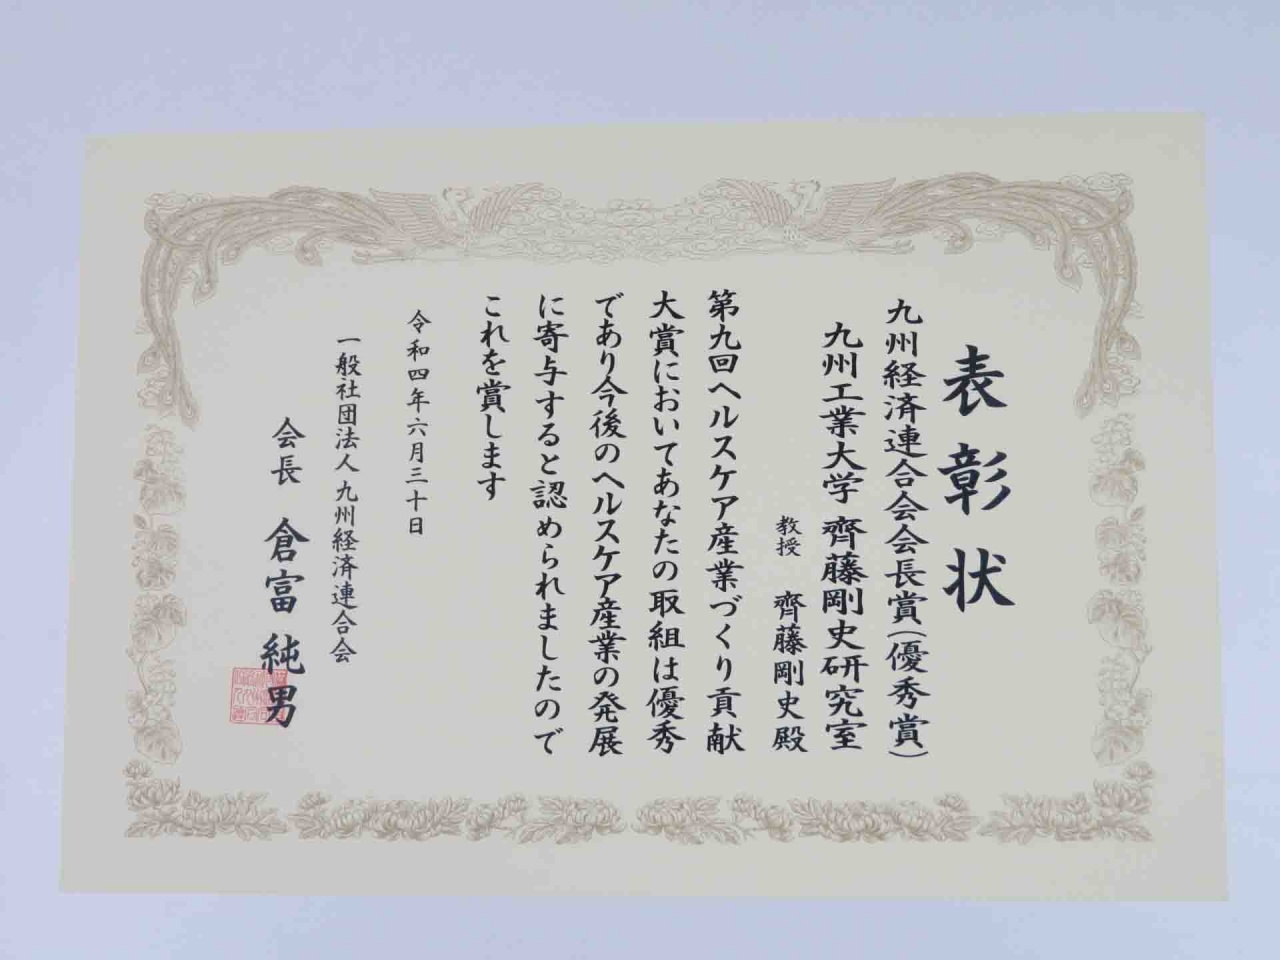 表彰状
九州経済連合会会長賞(優秀賞)
九州工業大学 齊藤剛史研究室
教授 齊藤剛史殿
第九回ヘルスケア産業づくり貢献
大賞においてあなたの取組は優秀
であり今後のヘルスケア産業の発展
に寄与すると認められましたので
これを賞します
令和四年六月三十日
一般社団法人 九州経済連合会
会長 倉富 純男